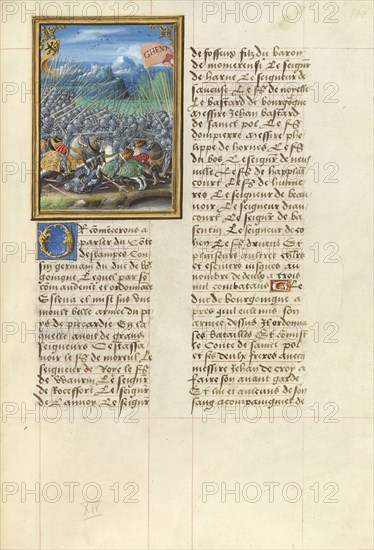 GHENT
Or cõmencerons a
parler du Côte
destampes Cou
sin germain du duc de bo⁹
goingne Lequel par son
com͂andem͂t et ordonnance
Esleva et mist sus une
moult belle armee du pa
ys de picardie En la
quelle avoit de grans
seigneurs Cestassa
voir le s͂r de moreul Le
seigneur de Roye le s͂r
de Waurin Le seigneur
de Rocefort Le seigneur
de Lannoy Le seigneur
de fosseux filz du baron
de momerensi Le seigneur
de harne Le seigneur de
saveuse Le s͂r de norelle
Le bastard de bourgõgne
messire Jehan bastard
de sainct pol Le s͂r de
dompierre messire phe
lippe de hornes Le s͂r
du bos Le seigneur de neuf
ville Le s͂r de happlain
court Le s͂r de humie
res Le seigneur de beau
voir Le seigneur diau
court Le s͂r de ba
sentin Le seigneur de co
hen Le s͂r drueil Et
pluiseurs aultres chl͂rs
et escuiers jusques au
nombre de deux a trois
mil combatans Le
duc de bourgoingne a
pres quil eult mis son
armee dessus Il ordonna
ses batailles Et com͂ist
le Conte de sainct pol
et ses deux freres avecq
messire Jehan de croy a
faire son avant garde
Et lui et aulcuns de son
sang acompaignies de
XIV